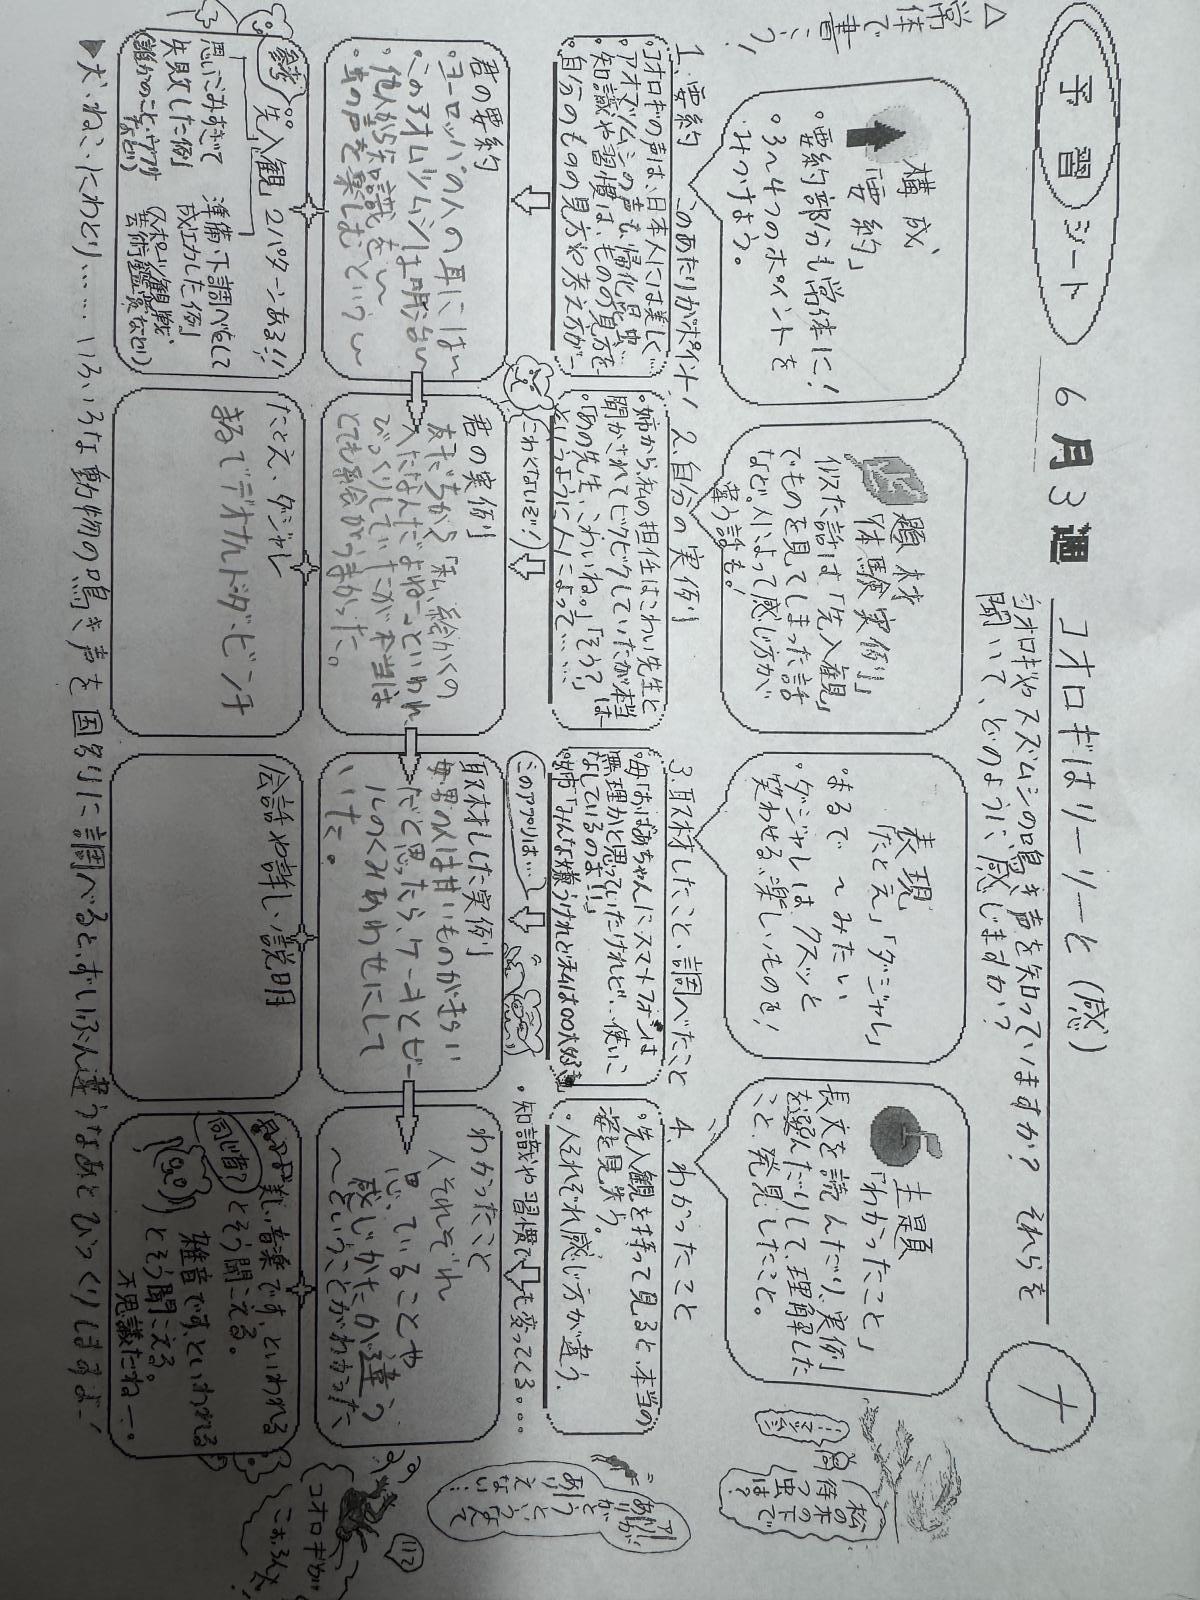 予習シート 6月3週 コオロギはリーリーと(感) ナ
コオロギやスズムシの鳴き声を知っていますか? それらを
聞いて、どのように感じますか?
△常体で書こう!
構成
「要約」
・要約部分も常体に!
・3〜4つのポイントを
みつけよう。
題材
「体験実例」
似た話は「先入観」
でものを見てしまった話
など。人によって感じ方が
違う話も!
表現
「たとえ」「ダジャレ」
・まるで〜みたい
・ダジャレは、クスッと
笑わせる、楽しいものを!
主題
「わかったこと」
長文を読んだり、実例
を選んだりして、理解した
こと、発見したこと。
松の木の下で
待つ虫は?
1.要約 このあたりがポイント!
・コオロギの声は、日本人には美しく…
・アオマツムシの声も、帰化昆虫…
・知識や習慣は、ものの見方を
・自分のものの見方や考え方が…
2.自分の実例
・姉から、私の担任はこわい先生と
聞かされてビクビクしていたが本当は
・「あの先生、こわいね。」「そう?」
というように人によって……
こわくないぞ!
3.取材したこと・調べたこと
・母「おばあちゃんにスマートフォンは
無理かと思っていたけれど…使いこ
なしているのよ!!」
・姉「みんな嫌うけれど私は○○大好き
このアプリは…
4.わかったこと
・先入観を持って見ると、本当の
姿を見失う。
・人それぞれ感じ方が違う。
・知識や習慣で も変ってくる。。。
君の要約
・ヨーロッパの人の耳には〜
・このアオマツムシは明治〜
・他人から知識を〜
・虫の声を楽しむという〜
君の実例
友だちから「私、絵かくの
へたなんだよねー」といわれ
びっくりしていたが本当は
とても絵がうまかった。
取材した実例
母:男の人は甘いものがきらい
だと思ったら、ケーキとビー
ルのくみあわせにして
いた。
わかったこと
人それぞれ
思っていることや
感じかたが違う
〜ということがわかった、
参考 「先入観」2パターンある!!
思いこみすぎて
失敗した例
(誰かのこと、ウワサ
など)
準備・下調べをして
成功した例
(スポーツ観戦、
芸術鑑賞など)
たとえ、ダジャレ
まるでデオナルド・ダ・ビンチ
会話や詳しい説明
美しい音楽です、といわれる
とそう聞こえる。
雑音です、といわれる
とそう聞こえる。
不思議だねー。
コオロギが
112
▼犬、ねこ、にわとり……いろいろな動物の鳴き声を国別に調べると、ずいぶん違うなあとびっくりしますよ!